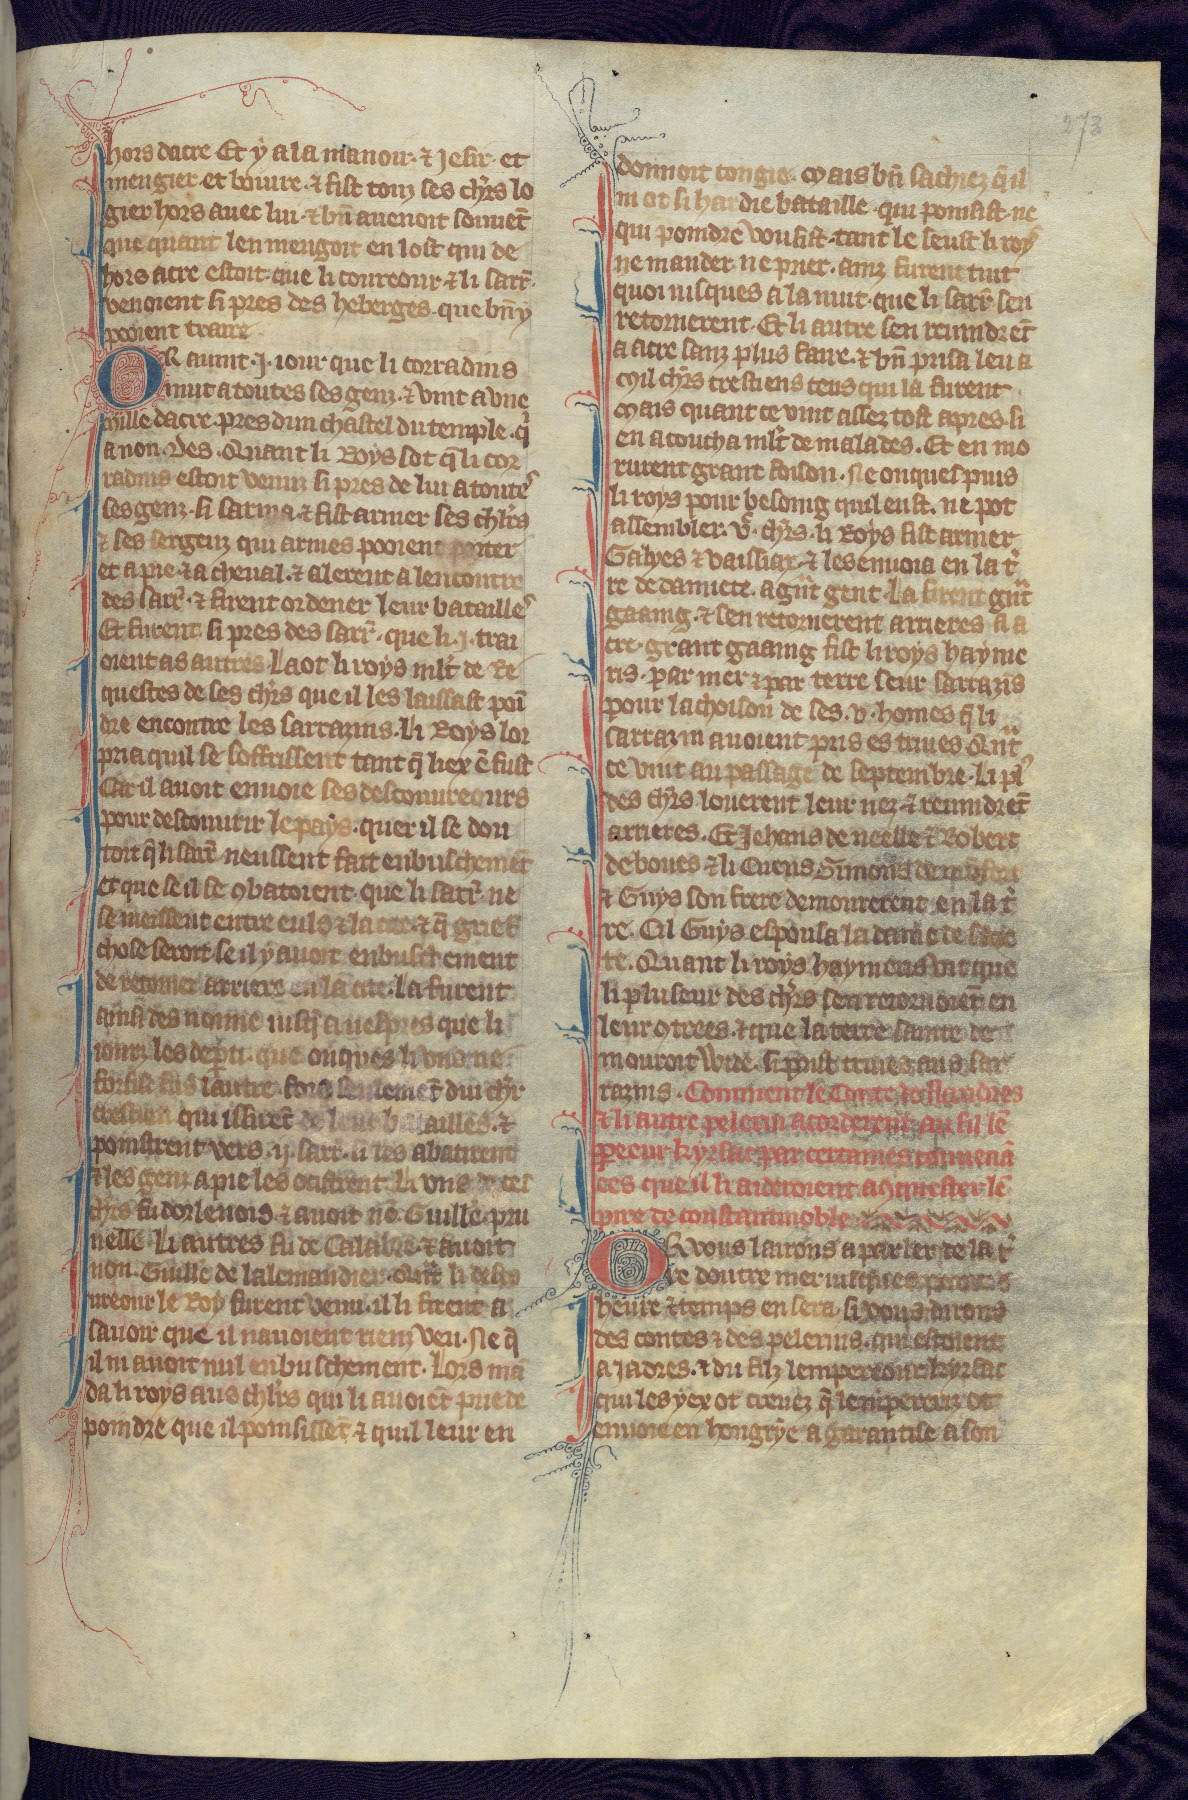 273
hors dacre Et y ala manoir. ⁊ Jesir. et
mengier. et boivre. ⁊ fist touz ses chrs lo
gier hors avec lui. ⁊ bn̄ avenoit souvēt
que quant len mengoit en lost qui de
hors acre estoit. que li coureour ⁊ li sarr̄.
venoient si pres des heberges. que bn̄ y
pooient traire
OR avint .j. iour que li corradins
mut a toutes ses genz. ⁊ vint a vne
mille dacre. pres dun chastel du temple. q̄
a non. Des. Quant li Roys sot q̄ li cor
radins estoit venuz si pres de lui a toute
ses genz. si sarma. ⁊ fist armer ses chlrs
⁊ ses sergenz qui armes pooient porter
et a pie. ⁊ a cheval. ⁊ alerent a lencontre
des sarr̄. ⁊ firent ordener leur batailles
Et furent si pres des sarr̄. que li .j. trai
oient as autres. La ot li roys mlt̄ de Re
questes de ses chrs que il les laissast poī
dre encontre les sarrazins. Li Roys lor
pria quil se soffrissent tant q̄ liex ē fust
Car il avoit envoie ses descouvreours
pour descouvrir le pays. quer il se dou
toit q̄ li sarr̄. neussent fait enbuschemēt
et que se il se ꝯbatoient. que li sarr̄. ne
se meissent entre euls ⁊ la cite. ⁊ q̄ grief
chose seroit se il y avoit enbuschement
de retorner arriere en la cite. La furent
ainsi des nonne iusq̄ a vespres que li
iourz les deꝑti. que onques li uns ne
forfist sus lautre. fors seulemēt dui chr̄
crestien qui issirēt de leur batailles. ⁊
poinstrent vers .ij. sarr̄. si les abatirent
⁊ les genz a pie les ocistrent. Li vns de ces
chrs fu dorlenois ⁊ avoit nō. Guille. pru
nelle. Li autres fu de Calabre. ⁊ avoit
non. Guille de lalemandier. Qn̄t li desco
vreour le Roy furent venu. il li firent a
savoir que il navoient riens veu. Ne q̄
il ni avoit nul enbuschement. Lors mā
da li roys aus chlrs qui li avoiēt prie de
poindre que il poinsissēt. ⁊ quil leur en
donnoit congie. Mais bn̄ sachiez q̄ il
ni ot si hardie bataille. qui poinsist. ne
qui poindre vousist. tant le seust li roys
ne mander ne prier. ainz furent tuit
quoi iusques a la nuit. que li sarr̄ sen
retornerent. Et li autre sen revindrēt
a acre sanz plus faire. ⁊ bn̄ prisa len a
Mil chrs crestiens ceus qui la furent
Mais quant ce vint assez tost apres. si
en acoucha mlt̄ de malades. Et en mo
rurent grant foison. Ne onques puis
li roys pour besoing quil eust. ne pot
assembler .v. chrs. li Roys fist armer
Galyes ⁊ vaissiax. ⁊ les envoia en la t̄
re de damiete. a gn̄t gent. La firent gn̄t
gaaing. ⁊ sen retornerent arrieres a a
cre. grant gaaing fist li roys hayme
ris. par mer ⁊ par terre seur sarrazīs
pour lachoison de ses .v. homes q̄ li
sarrazin avoient pris es trives. Qn̄t
ce vint au passage de septembre. Li pl̄
des chrs louerent leur nez ⁊ revindrēt
arrieres. Et Jehans de neelle ⁊ Robert
de boves ⁊ li Cuens Simons de monfort
⁊ Guys son frere demourerent en la t̄
re. Cil Guys espousa la dame de saie
te. Quant li roys haymeris vit que
li pluseur des chrs sen retornoiēt en
leur ꝯtrees. ⁊ que la terre sainte de
mouroit wide. si prist trives aus sar
razins. Comment le Conte de flandres
⁊ li autre pelerin acorderent au fil lē
pereur kyrsac par certaines convenā
ces que il li aideroient a ꝯquester lē
pire de constantinoble
OR vous lairons a parler de la t̄
re doutre mer iusques
heure ⁊ temps en sera. si vous dirons
des contes ⁊ des pelerins. qui estoient
a Jadres. ⁊ du filz lempereour kyrsac
qui les yex ot crevez q̄ lempereriz ot
envoie en hongrye a garantise a son